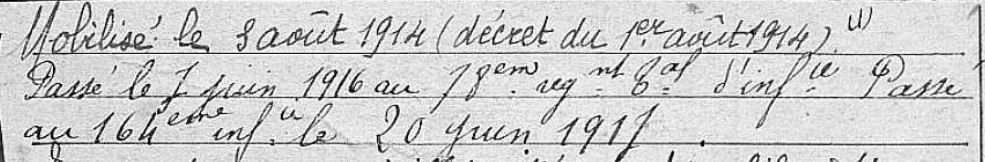 Mobilisé le 3 août 1914 (décret du 1er août 1914) (1)
Passé le 7 juin 1916 au 78em regnt d'infie Passé
au 164eme infie le 20 juin 1917.